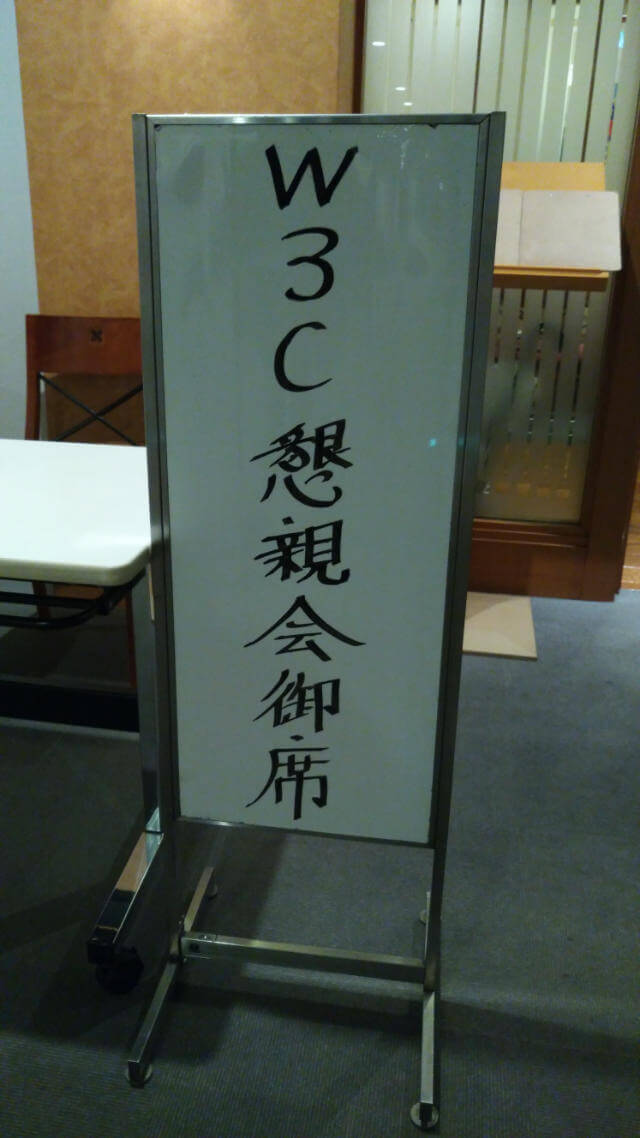 W3C懇親会御席